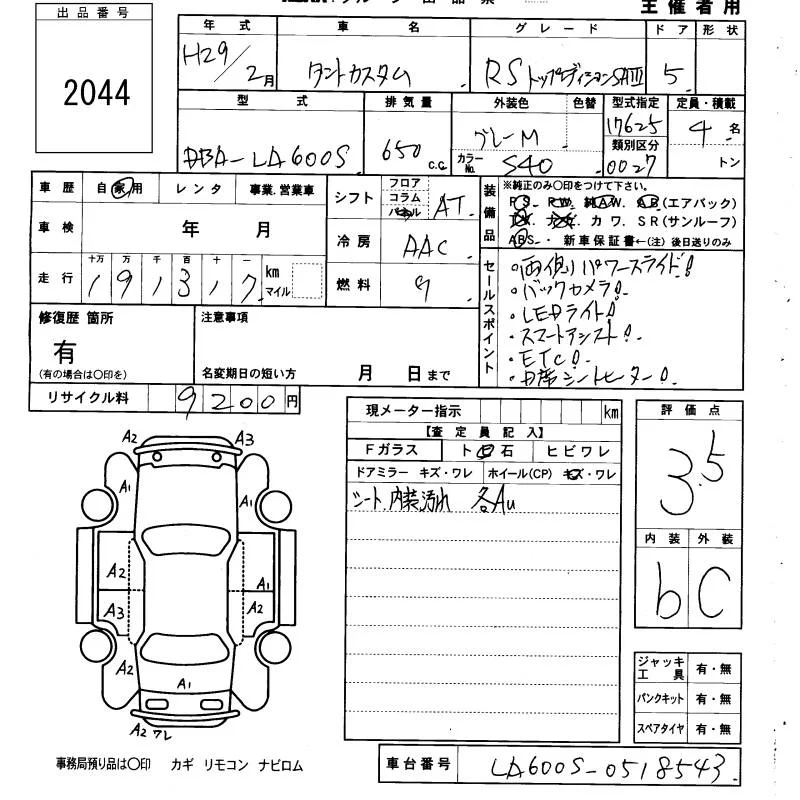 主催者用
出品番号
2044
年式 車名 グレード ドア 形状
H29/2月 タントカスタム RSトップエディションSAⅢ 5
型式 排気量 外装色 色替 型式指定 定員・積載
DBA-LA600S 650 c.c. グレーM 17625 4名
カラーNo. S40 類別区分 0027 トン
車歴 自家用 レンタ 事業.営業車
車検 年 月
走行 十万 万 千 百 十 一 km マイル
191317
シフト フロア コラム パネル AT
冷房 AAC
燃料 ガ
装備品 ※純正のみ〇印をつけて下さい。
PS. PW. 純AW. AB(エアバック)
カワ. SR(サンルーフ)
ABS. 新車保証書←(注) 後日送りのみ
セールスポイント
・両側パワースライド!
・バックカメラ!
・LEDライト!
・スマートアシスト!
・ETC!
・シートヒーター!
修復歴 箇所 注意事項
有
(有の場合は〇印を) 名変期日の短い方 月 日まで
リサイクル料 9200円
現メーター指示 km
【査定員記入】
Fガラス ト 石 ヒビワレ
ドアミラー キズ・ワレ ホイール(CP) キズ・ワレ
シート、内装汚れ 各AU
評価点
3.5
内装 外装
b C
A2 A3
A1 A1
A2 A1
A3 A2
A2
A1
A2 ワレ
ジャッキ工具 有・無
パンクキット 有・無
スペアタイヤ 有・無
事務局預り品は〇印 カギ リモコン ナビロム
車台番号 LA600S-0518543